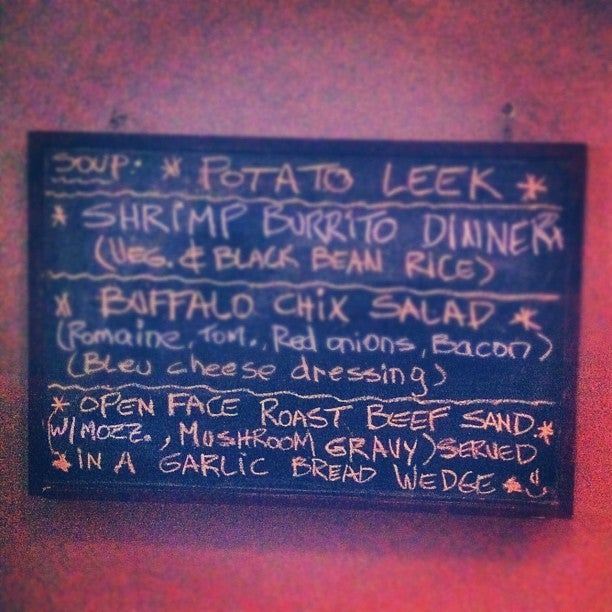 SOUP: * POTATO LEEK *
* SHRIMP BURRITO DINNER *
(VEG. & BLACK BEAN RICE)
* BUFFALO CHIX SALAD *
(Romaine, Tom., Red onions, Bacon)
(Bleu cheese dressing)
* OPEN FACE ROAST BEEF SAND. *
(W/ MOZZ., MUSHROOM GRAVY) SERVED
* IN A GARLIC BREAD WEDGE *